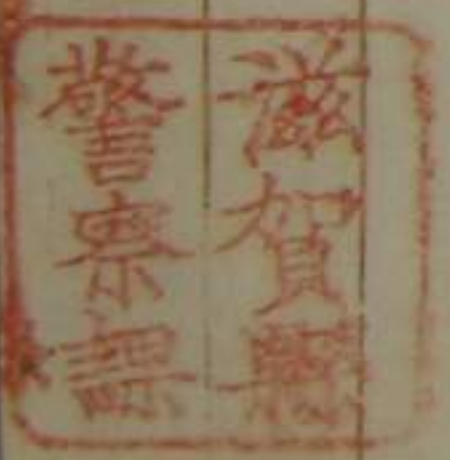 滋賀縣
警察課